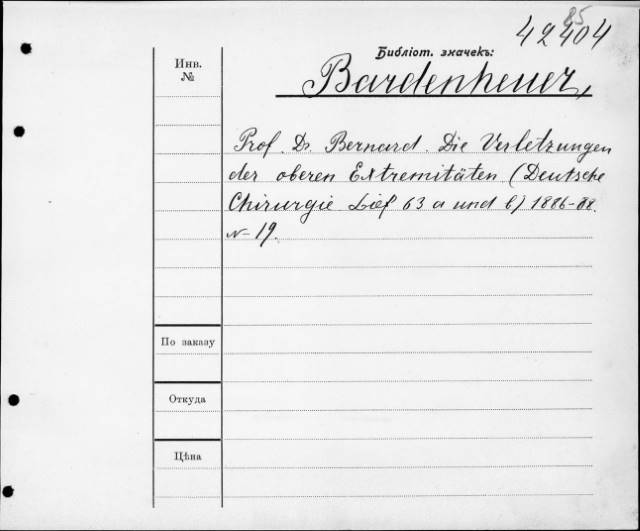 85
42404
Библіот. значекъ:
Инв.
№
Bardenheuer,
Prof. Dr. Bernard. Die Verletzungen
der oberen Extremitäten (Deutsche
Chirurgie Lief 63 a und b) 1886-88.
N-19.
По заказу
Откуда
Цѣна